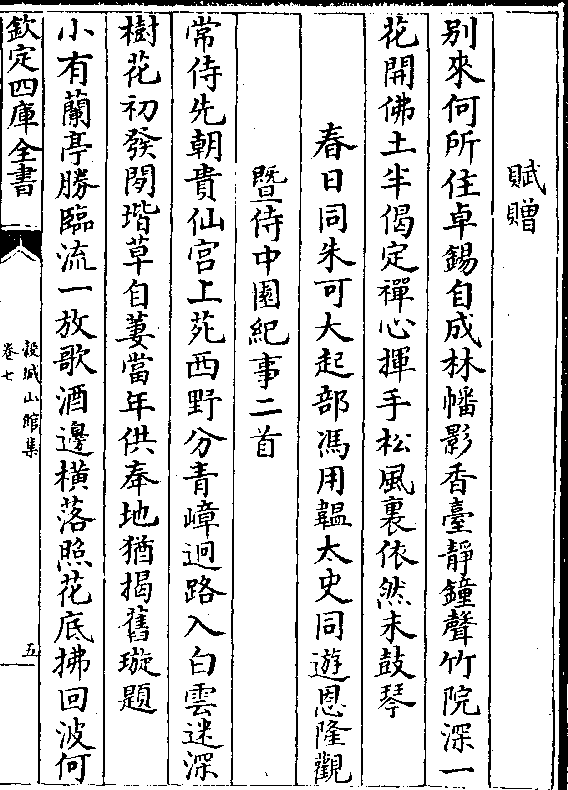 賦贈
別來何所住卓錫自成林幡影香臺靜鐘聲竹院深一
花開佛土半偈定禪心揮手松風裏依然未鼓琴
春日同朱可大起部馮用韞太史同遊恩隆觀
暨侍中園紀事二首
常侍先朝貴仙宫上苑西野分青嶂迥路入白雲迷深
樹花初發閒堦草自萋當年供奉地猶揭舊璇題
小有蘭亭勝臨流一放歌酒邊橫落照花底拂回波何
欽定四庫全書
穀城山館集
卷七
五